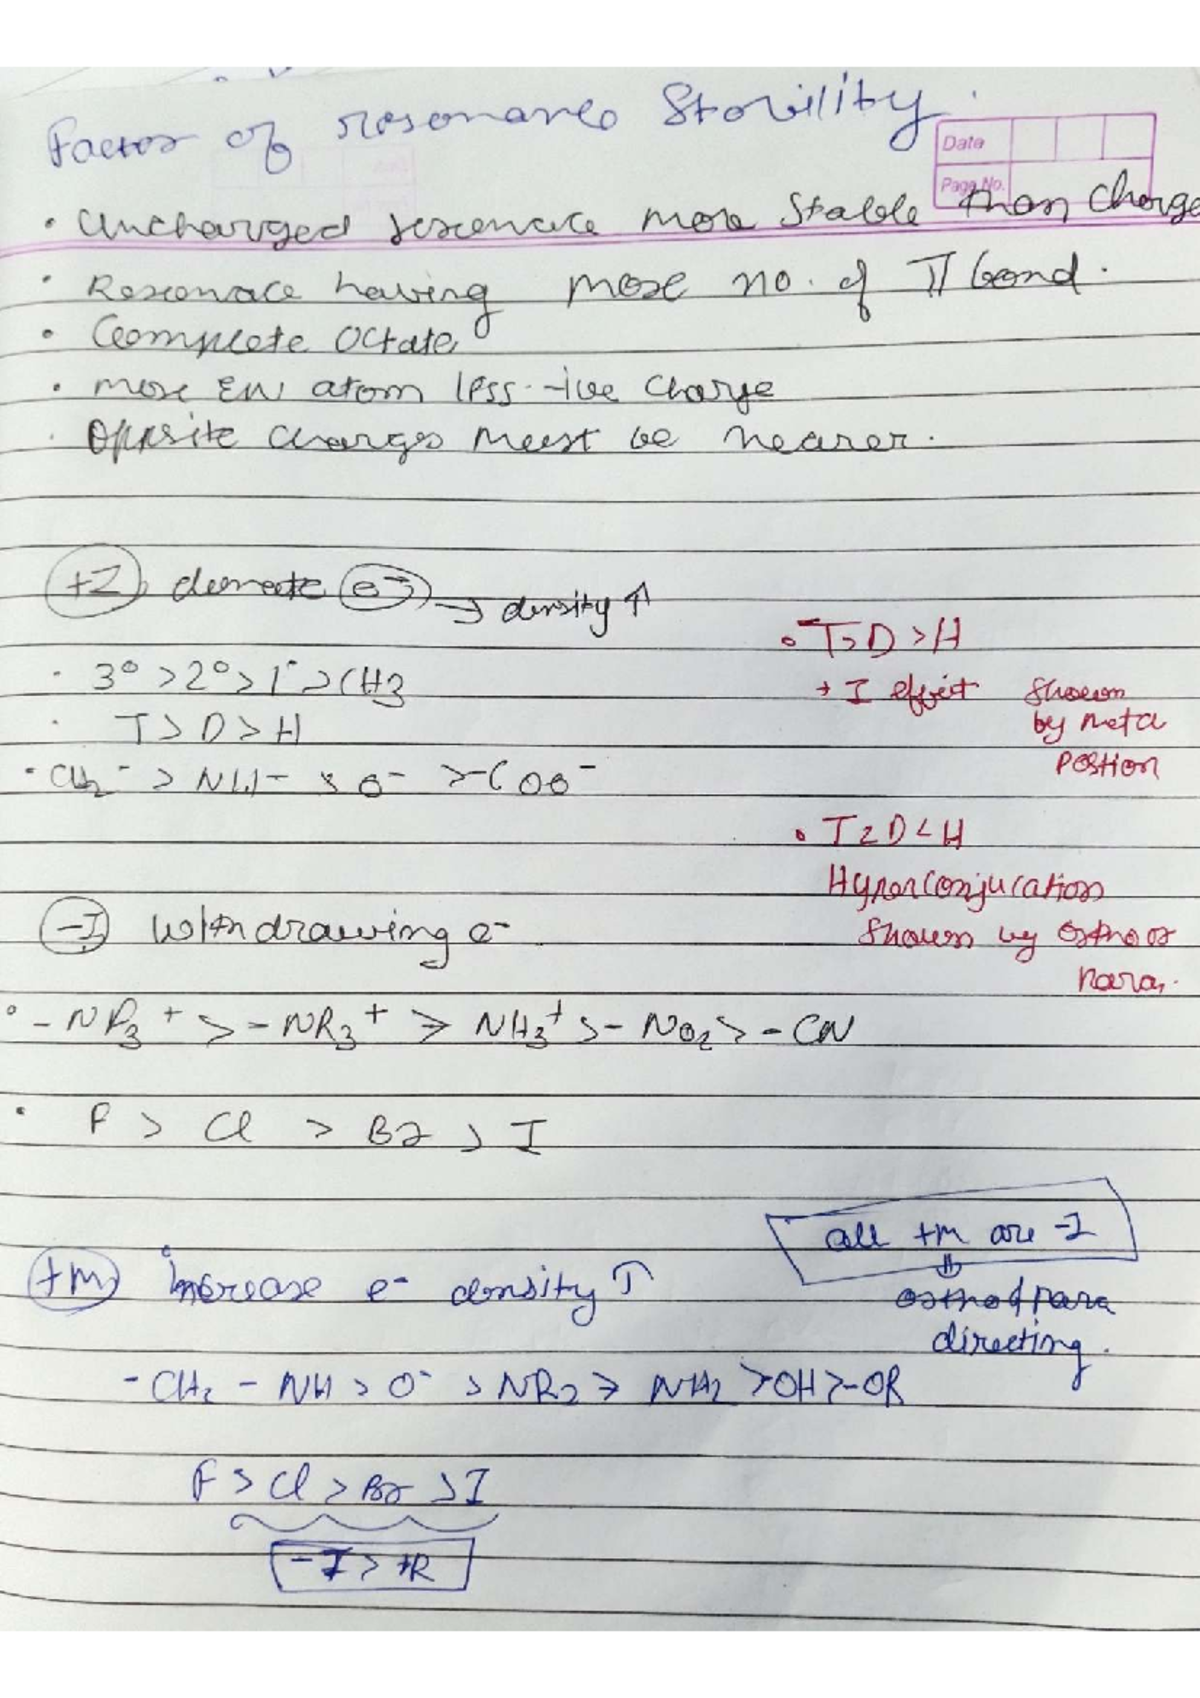 Factor of resonance Stability.
Date
Page No.
• Uncharged resonace more Stable than Charge
• Resonace having more no. of π bond.
• Complete Octate
• more EN atom less -ive Charge
• Opposite Charges Meest be nearer.
+I donate e⁻ → density ↑
• 3° > 2° > 1° > CH3
• T > D > H
• CH2⁻ > NH⁻ > O⁻ > -COO⁻
• T > D > H
+ I effect Shown
by meta
Postion
• T < D < H
Hyperconjucation
Shown by ortho or
para.
-I withdrawing e⁻
• -NF3⁺ > -NR3⁺ > NH3⁺ > -NO2 > -CN
• F > Cl > Br > I
all +m are -I
⇓
ortho & para
directing.
+m increase e⁻ density ↑
-CH2 - NH > O⁻ > NR2 > NH2 > OH > -OR
F > Cl > Br > I
-I > +R